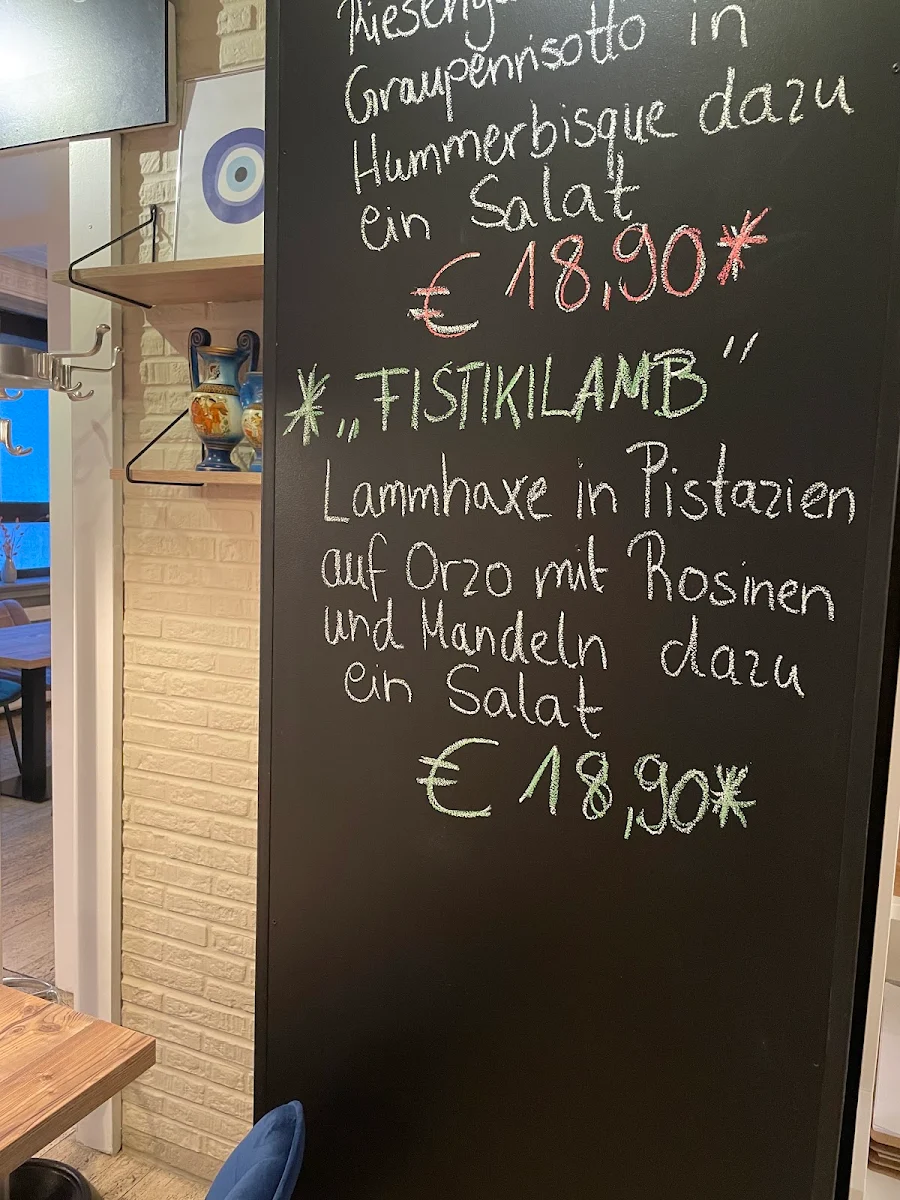 Graupenrisotto in
Hummerbisque dazu
ein Salat
€ 18,90*
* „FISTIKILAMB”
Lammhaxe in Pistazien
auf Orzo mit Rosinen
und Mandeln dazu
ein Salat
€ 18,90*